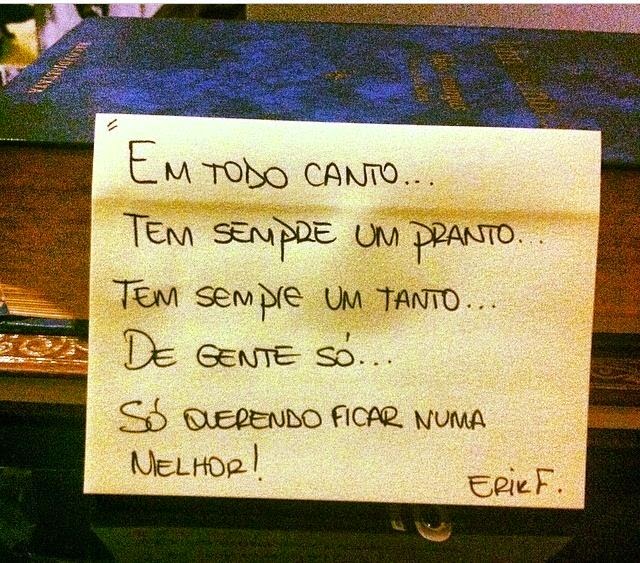 "
EM TODO CANTO...
TEM SEMPRE UM PRANTO...
TEM SEMPRE UM TANTO...
DE GENTE SÓ...
SÓ QUERENDO FICAR NUMA
MELHOR!
ERIK F.